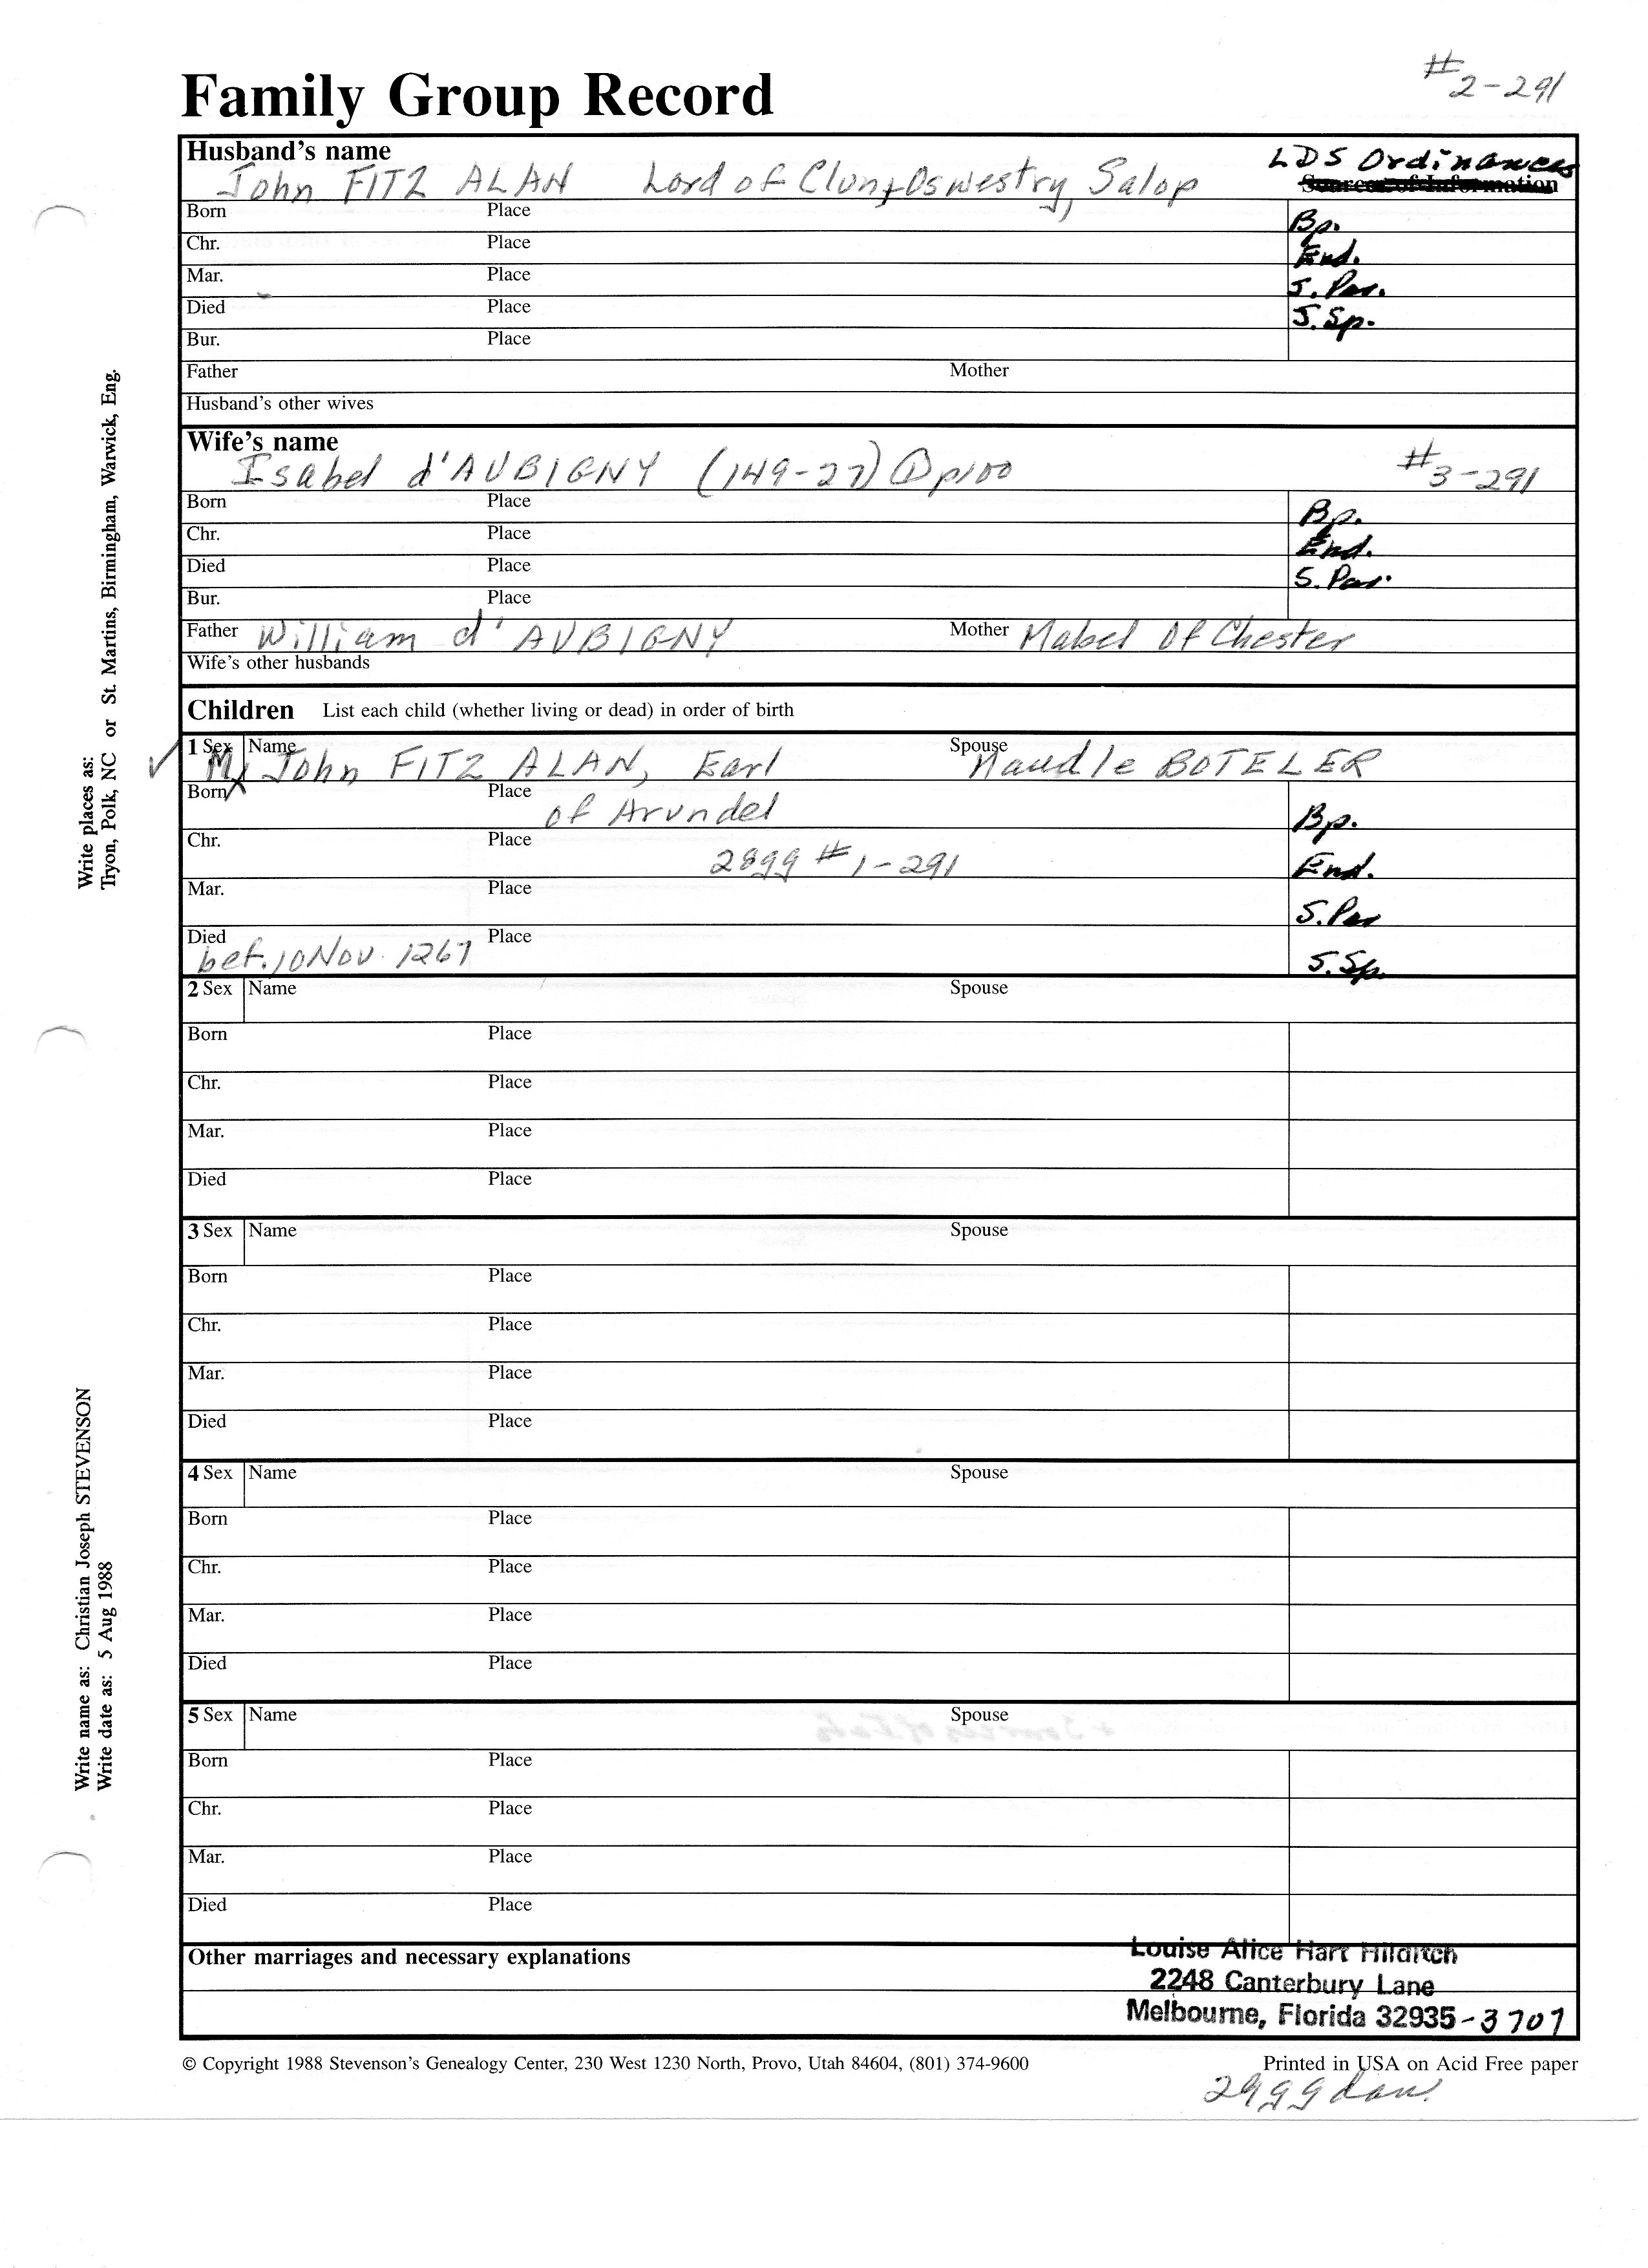 #2-291
Family Group Record
Husband's name
LDS Ordinances
John FITZ ALAN Lord of Clun+Oswestry, Salop
Sources of Information
Born Place Bp.
Chr. Place End.
Mar. Place S. Par.
Died Place S. Sp.
Bur. Place
Father Mother
Husband's other wives
Wife's name
Isabel d'AUBIGNY (149-27) ① p100 #3-291
Born Place Bp.
Chr. Place End.
Died Place S. Par.
Bur. Place
Father William d'AUBIGNY Mother Mabel Of Chester
Wife's other husbands
Children List each child (whether living or dead) in order of birth
1 Sex M Name John FITZ ALAN, Earl Spouse Maud le BOTELER
Born Place of Arundel Bp.
Chr. Place 28gg #1-291 End.
Mar. Place S. Par
Died bef. 10 Nov. 1267 Place S. Sp.
2 Sex Name Spouse
Born Place
Chr. Place
Mar. Place
Died Place
3 Sex Name Spouse
Born Place
Chr. Place
Mar. Place
Died Place
4 Sex Name Spouse
Born Place
Chr. Place
Mar. Place
Died Place
5 Sex Name Spouse
Born Place
Chr. Place
Mar. Place
Died Place
Other marriages and necessary explanations
Louise Alice Hart Hilditch
2248 Canterbury Lane
Melbourne, Florida 32935-3707
© Copyright 1988 Stevenson's Genealogy Center, 230 West 1230 North, Provo, Utah 84604, (801) 374-9600
Printed in USA on Acid Free paper
Write places as:
Tryon, Polk, NC or St. Martins, Birmingham, Warwick, Eng.
Write name as: Christian Joseph STEVENSON
Write date as: 5 Aug 1988